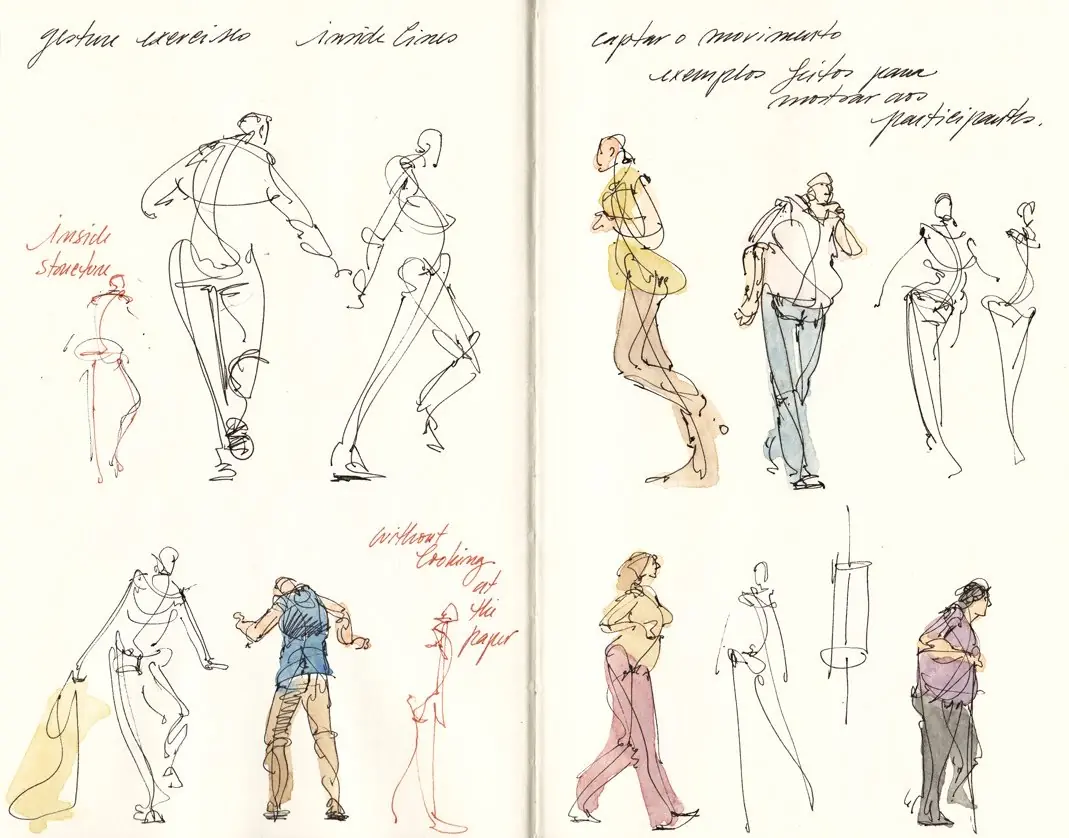 gesture exercises
inside lines
inside
structure
without
looking
at
the
paper
captar o movimento
exemplos feitos para
mostrar aos
participantes.